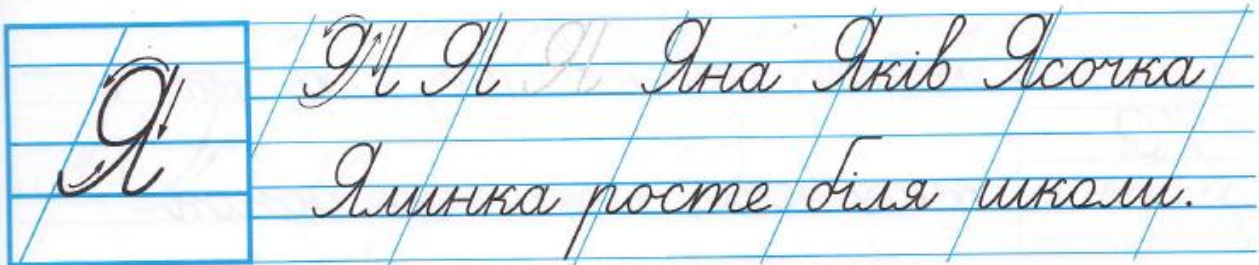 Я Я Я Я Яна Яків Ясочка
Ялинка росте біля школи.